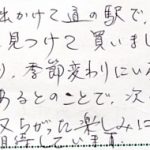 出かけて道の駅で、
見つけて買いまし
り、季節変わりにい
あるとのことで、次
又ちがった楽しみに
期待しています